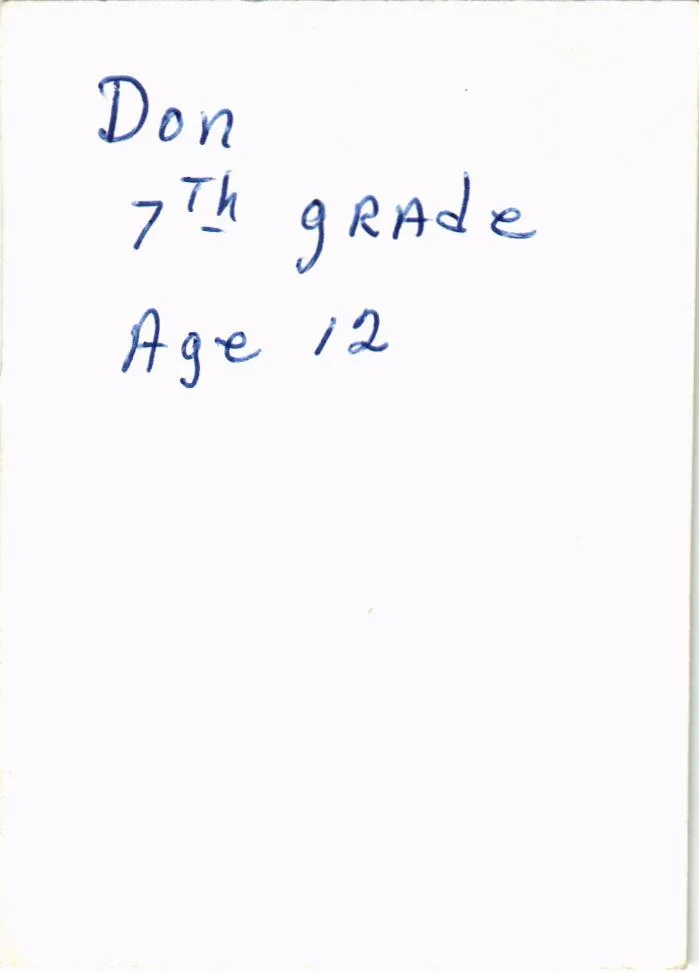 Don
7Th gRAde
Age 12